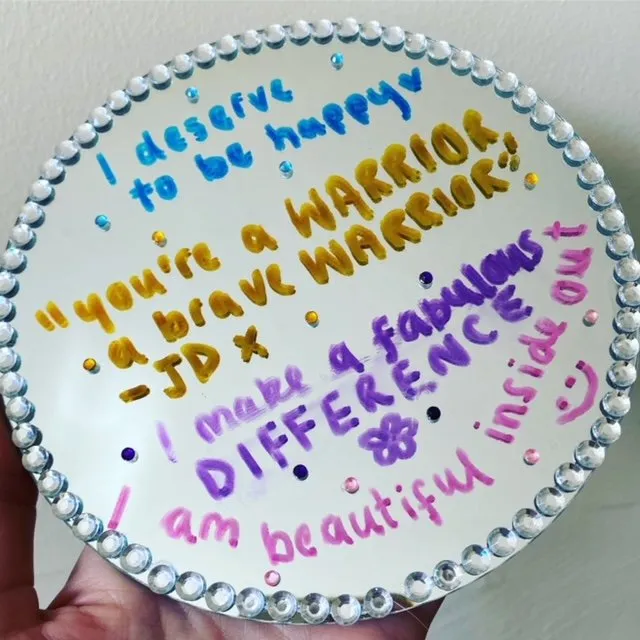 I deserve
to be happy
"you're a WARRIOR,
a brave WARRIOR"
- JD x
I make a fabulous
DIFFERENCE
I am beautiful inside out